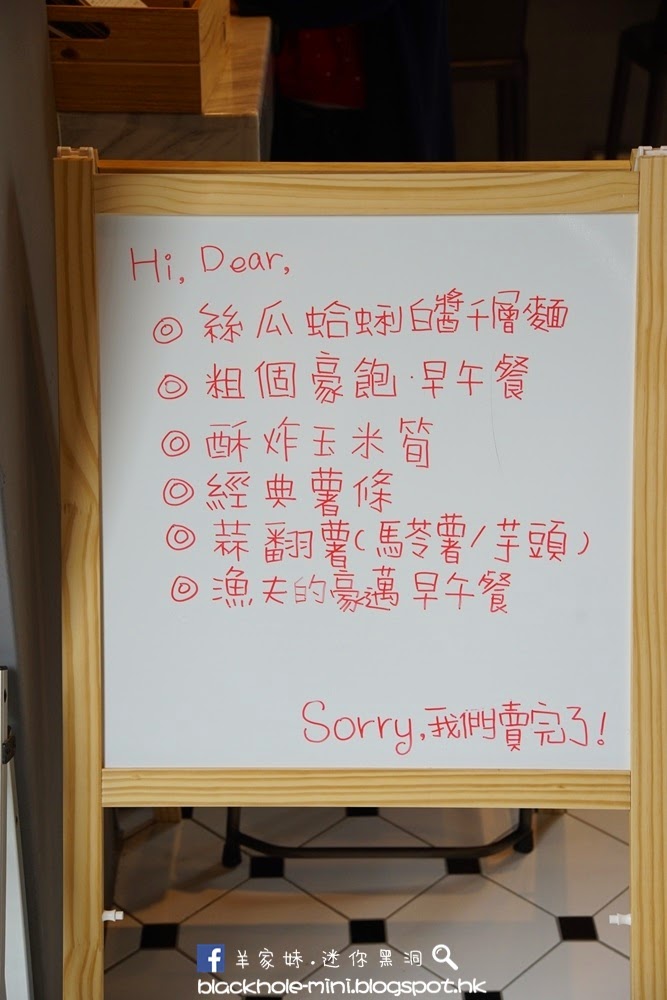 Hi, Dear,
◎ 絲瓜蛤蜊白醬千層麵
◎ 粗個豪飽·早午餐
◎ 酥炸玉米筍
◎ 經典薯條
◎ 蒜翻薯(馬苓薯/芋頭)
◎ 漁夫的豪邁早午餐
Sorry,我們賣完了!
羊家妹.迷你黑洞
blackhole-mini.blogspot.hk